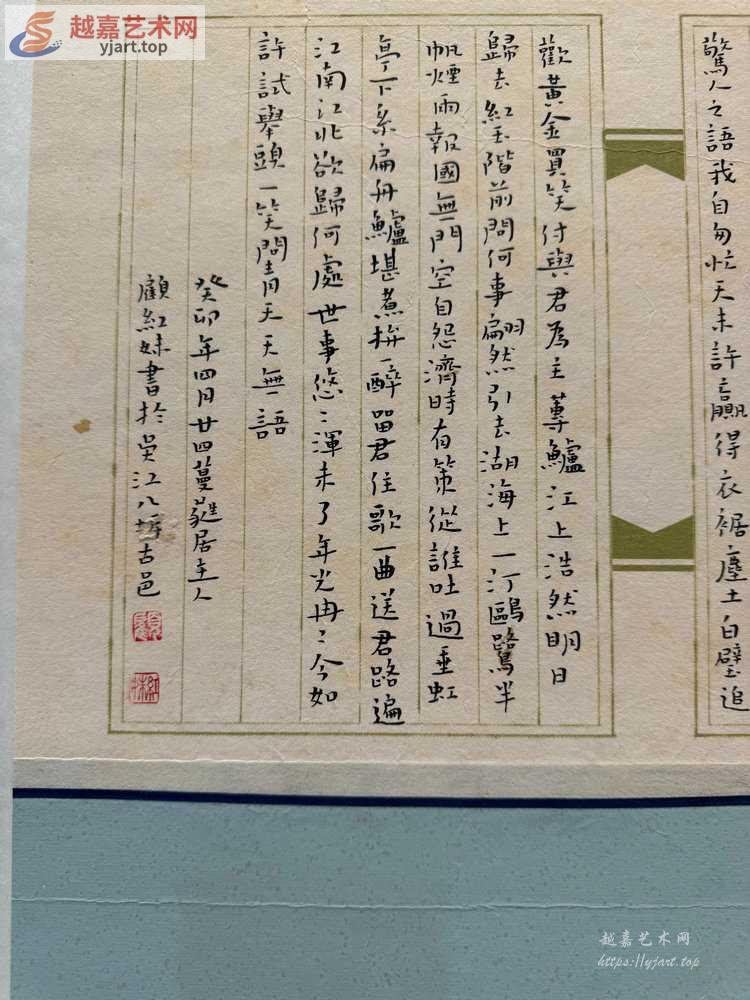 越嘉艺术网
yjart.top
驚人之語我自匆忙天未許贏得衣裾塵土白璧追
歡黃金買笑付與君為主蓴鱸江上浩然明日
歸去紅玉階前問何事翩然引去湖海上一汀鷗鷺半
帆煙雨報國無門空自怨濟時有策從誰吐過垂虹
亭下系扁舟鱸堪煮拚一醉留君住歌一曲送君路遍
江南江北欲歸何處世事悠〻渾未了年光冉〻今如
許試舉頭一笑問青天天無語
癸卯年四月廿四蔓蕤居主人
顧紅妹書於吳江八坼古邑
越嘉艺术网
https://yjart.top